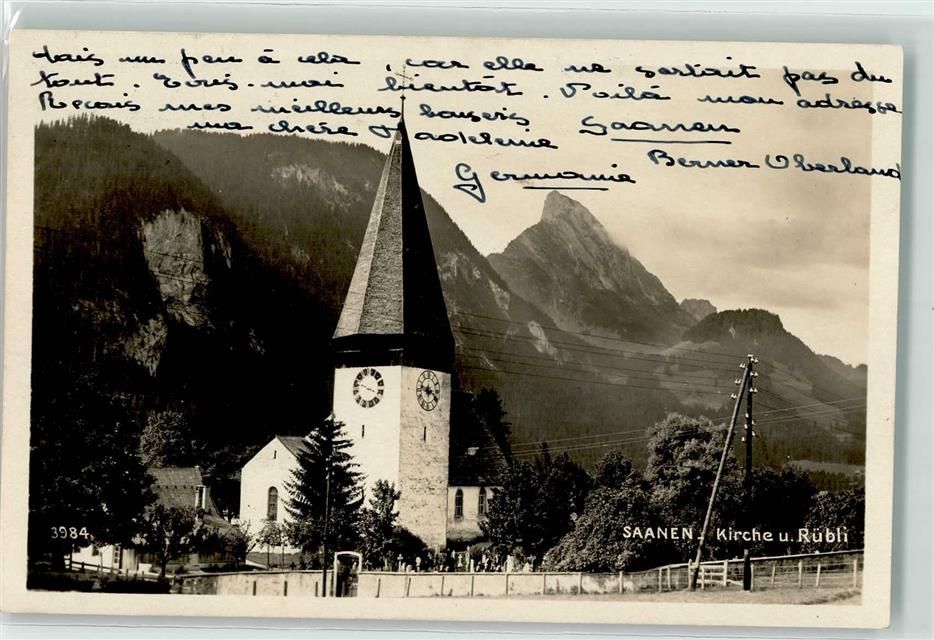 tais un peu à cela, car elle ne sortait pas du
tout. Ecris-moi bientôt. Voilà mon adresse
Reçois mes meilleurs baisers
ma chère Madeleine Saanen
Berner Oberland
Germanie
3984
SAANEN. Kirche u. Rübli